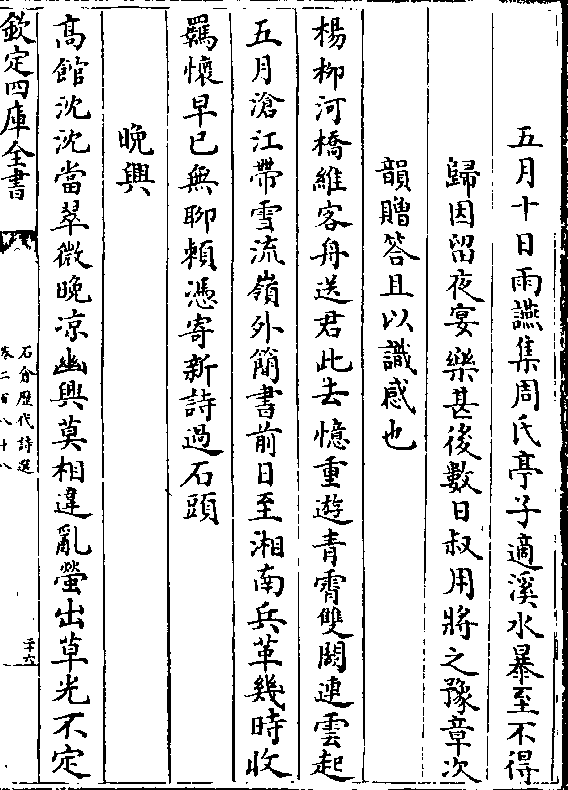 五月十日雨讌集周氏亭子適溪水暴至不得
歸因留夜宴樂甚後數日叔用將之豫章次
韻贈答且以識感也
楊柳河橋維客舟送君此去憶重遊青霄雙闕連雲起
五月滄江帶雪流嶺外簡書前日至湘南兵革幾時收
羈懷早已無聊賴憑寄新詩過石頭
晚興
高館沈沈當翠微晚凉幽興莫相違亂螢出草光不定
欽定四庫全書
石倉歷代詩選
卷二百八十八
二十六